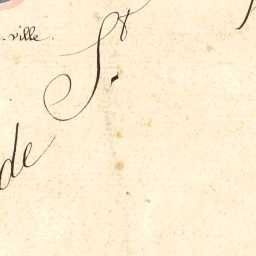 -ville.
de St.